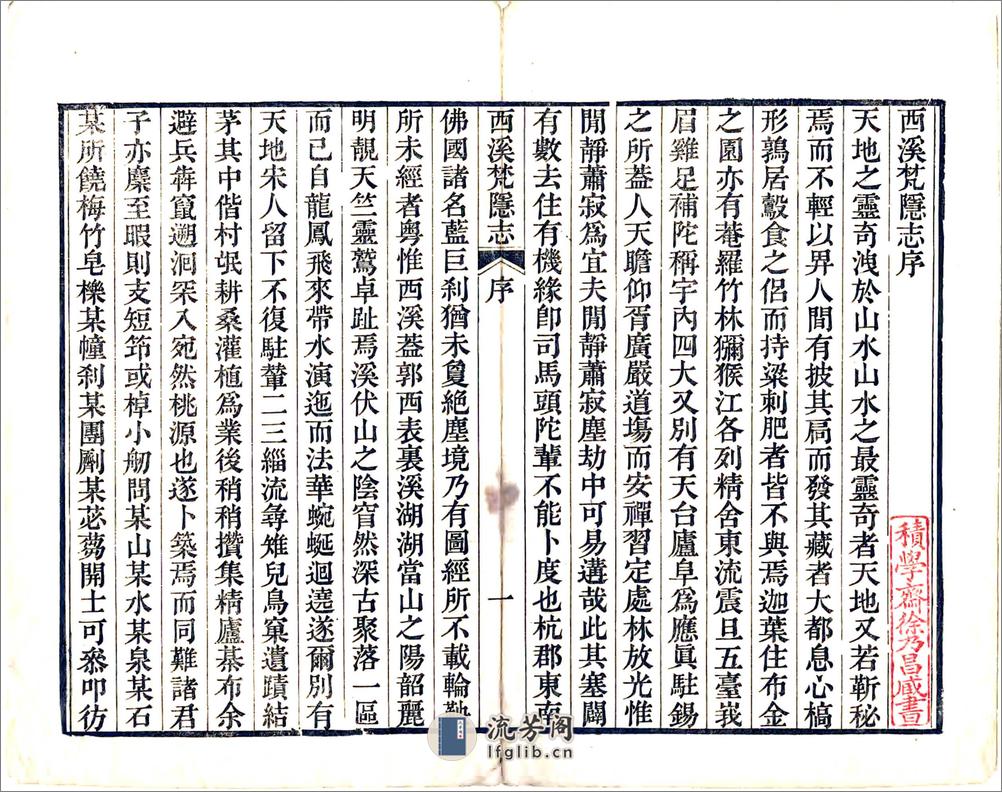 西溪梵隱志序
天地之靈奇洩於山水山水之最靈奇者天地又若靳秘
焉而不輕以畀人間有披其扃而發其藏者大都息心槁
形鶉居鷇食之侶而持粱刺肥者皆不與焉迦葉住布金
之園亦有菴羅竹林獼猴江各列精舍東流震旦五臺峩
眉雞足補陀稱宇內四大又別有天台廬阜爲應眞駐錫
之所葢人天瞻仰胥廣嚴道塲而安禪習定處林放光惟
閒靜蕭寂爲宜夫閒靜蕭寂塵劫中可易遘哉此其塞闢
有數去住有機緣卽司馬頭陀輩不能卜度也杭郡東南
西溪梵隱志 序 一
佛國諸名藍巨刹猶未夐絶塵境乃有圖經所不載輪
所未經者粤惟西溪葢郭西表裏溪湖湖當山之陽韶麗
明靚天竺靈鷲卓趾焉溪伏山之陰窅然深古聚落一區
而已自龍鳳飛來帶水演迤而法華蜿蜒迴遶遂爾別有
天地宋人留下不復駐輦二三緇流尋雉兒鳥窠遺蹟結
茅其中偕村氓耕桑灌植爲業後稍稍攢集精廬棊布余
避兵奔竄遡洄罙入宛然桃源也遂卜築焉而同難諸君
子亦麇至暇則支短筇或棹小舠問某山某水某泉某石
某所饒梅竹皂櫟某幢刹某團劘某苾蒭開士可叅叩彷
積學齋徐乃昌藏書
流芳阁
lfglib.cn